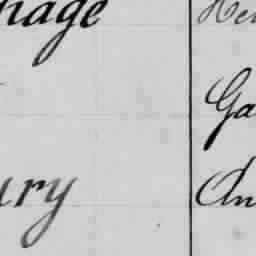 hage Hen
Ga
ury An